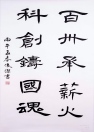 百卅承薪火
科創鑄國魂